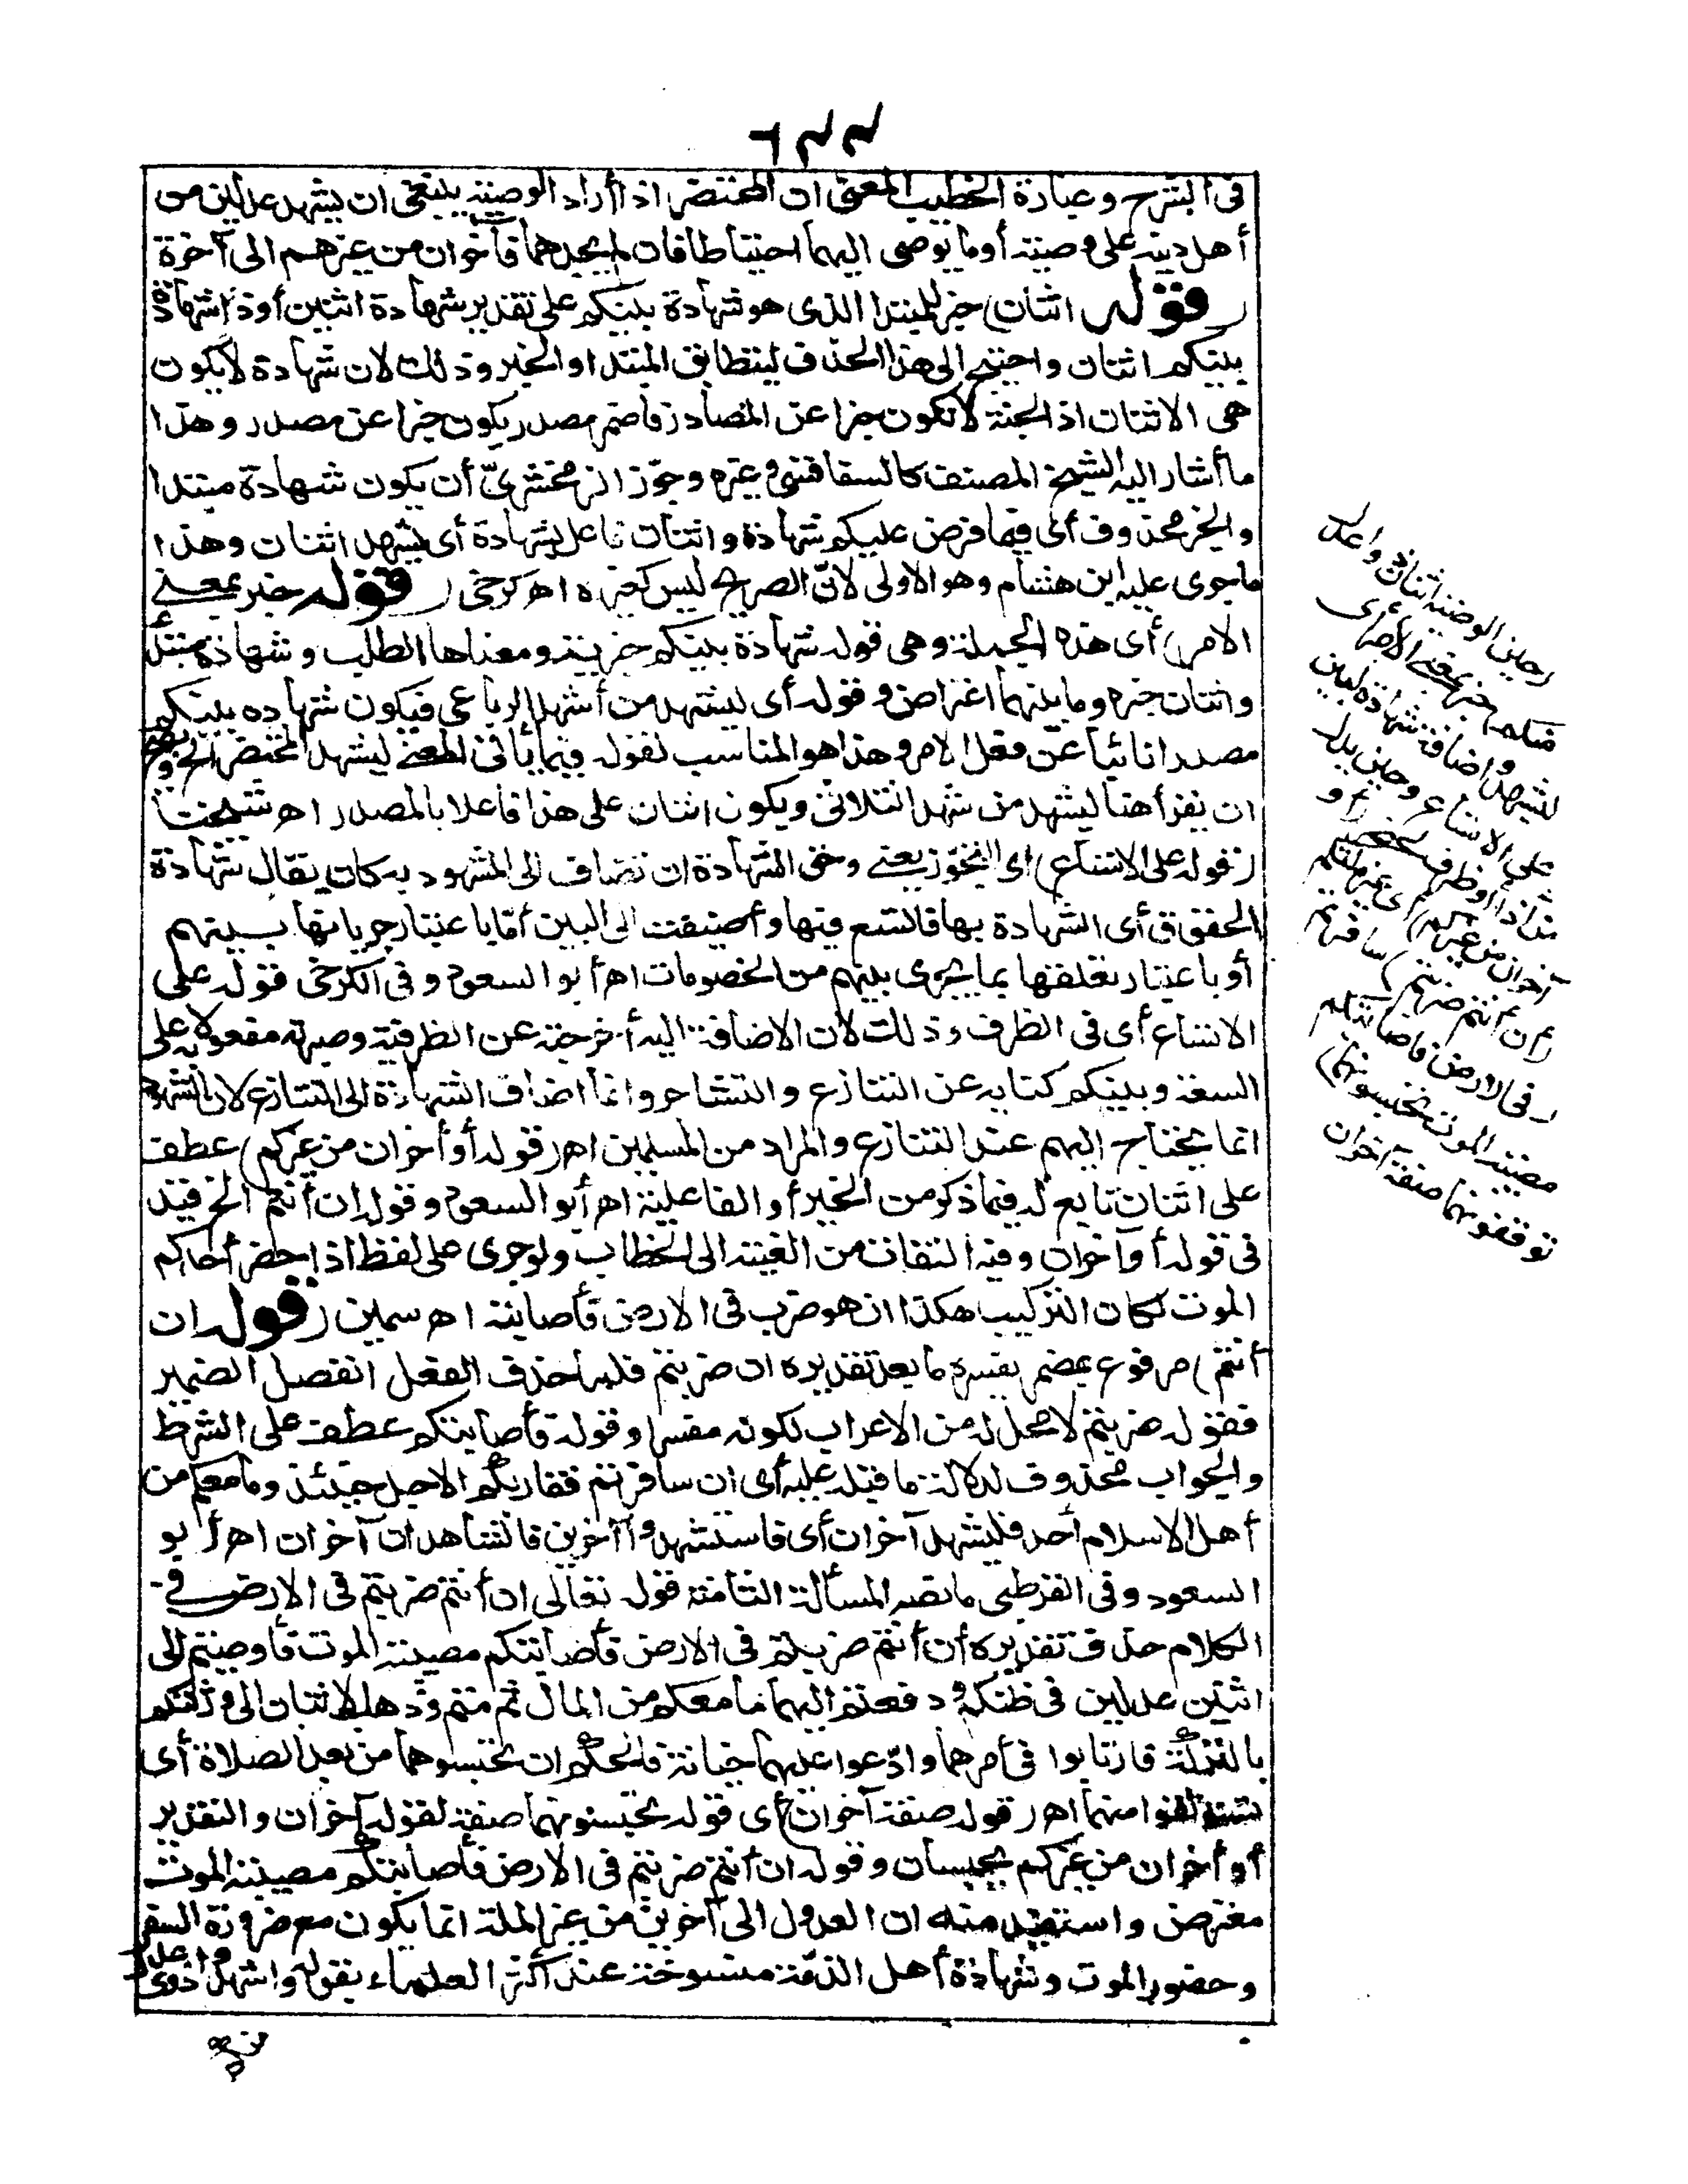 ٦٣٣
في الشرح وعبارة الخطيب المعنى ان المحتضر اذا أراد الوصية ينبغي ان يشهد عدلين من
أهل دينه على وصيته أو ما يوصى اليهما احتياطا فان لم يجدهما فآخران من غيرهم الى آخره
(قوله اثنان) خبر للمبتدا الذى هو شهادة بينكم على تقدير شهادة اثنين أو ذا شهادة
بينكم اثنان واحتيج الى هذا الحذف ليتطابق المبتدا والخبر وذلك لان شهادة لا يكون
هى الاثنان اذ الجثة لا تكون خبرا عن المصادر فاضمر مصدر يكون خبرا عن مصدر وهذا
ما أشار اليه الشيخ المصنف كالسفاقسى وغيره وجوّز الزمخشرىّ أن يكون شهادة مبتدا
والخبر محذوف أى فيما فرض عليكم شهادة واثنان فاعل بشهادة أى يشهد اثنان وهذا
ما جرى عليه ابن هشام وهو الاولى لانّ الصريح ليس كغيره اه كرخى (قوله خبر بمعنى
الامر) أى هذه الجملة وهى قوله شهادة بينكم خبرية ومعناها الطلب وشهادة مبتدأ
واثنان خبره وما بينهما اعتراض وقوله أى ليشهد من أشهد الرباعى فيكون شهادة بينكم
مصدرا نائبا عن فعل الامر وهذا هو المناسب لقوله فيما يأتى المعنى ليشهد المحتضر الخ ويصح
ان يقرأ هنا ليشهد من شهد الثلاثى ويكون اثنان على هذا فاعلا بالمصدر اه شيخنا
(قوله على الاتساع) اى التجوّز يعنى وحق الشهادة ان تضاف الى المشهود به كان يقال شهادة
الحقوق أى الشهادة بها فاتسع فيها وأضيفت الى البين امّا باعتبار جريانها بينهم
أو باعتبار تعلقها بما يجرى بينهم من الخصومات اه أبو السعود وفى الكرخى قوله على
الاتساع أى فى الظرف وذلك لان الاضافة اليه أخرجته عن الظرفية وصيرته مفعولا به على
السعة وبينكم كناية عن التنازع والتشاجر وانما اضاف الشهادة الى التنازع لان الشهود
انما يحتاج اليهم عند التنازع والمراد من المسلمين اه (قوله أو آخران من غيركم) عطف
على اثنان تابع له فيما ذكر من الخبر أو الفاعلية اه أبو السعود وقوله ان أنتم الخ قيد
فى قوله أو آخران وفيه التفات من الغيبة الى الخطاب ولو جرى على لفظ اذا حضر أحدكم
الموت لكان التركيب هكذا ان هو ضرب فى الارض فأصابته اه سمين (قوله ان
أنتم) مرفوع بمضمر يفسره ما بعد تقديره ان ضربتم فلما حذف الفعل انفصل الضمير
فقوله ضربتم لا محل له من الاعراب لكونه مفسرا وقوله فأصابتكم عطف على الشرط
والجواب محذوف لدلالة ما قبله عليه أى ان سافرتم فقاربكم الاجل حينئذ وما معكم من
أهل الاسلام أحد فليشهد آخران أى فاستشهدوا آخرين فالشاهدان آخران اه أبو
السعود وفى القرطبى ما نصه المسألة الثامنة قوله تعالى ان أنتم ضربتم فى الارض فى
الكلام حذف تقديره ان أنتم ضربتم فى الارض فأصابتكم مصيبة الموت فأوصيتم الى
اثنين عدلين فى ظنكم ودفعتم اليهما ما معكم من المال ثم متم وذهب الاثنان الى ورثتكم
بالتركة فارتابوا فى أمرهما وادّعوا عليهما خيانة فالحكم ان تحبسوهما من بعد الصلاة أى
تستوثقوا منهما اه (قوله صفة آخران) أى قوله تحبسونهما صفة لقوله آخران والتقدير
أو آخران من غيركم يحبسان وقوله ان أنتم ضربتم فى الارض فأصابتكم مصيبة الموت
معترض واستفيد منه ان العدول الى آخرين من غير الملة انما يكون مع ضرورة السفر
وحضور الموت وشهادة أهل الذمّة منسوخة عند أكثر العلماء بقوله واشهدوا ذوى عدل
(حين الوصية اثنان ذوا عدل
منكم) خبر بمعنى الامر أى
ليشهد واضافة شهادة لبين
على الاتساع وحين بدل
من اذا أو ظرف لحضر (أو
آخران من غيركم) أى غير ملتكم
(ان أنتم ضربتم) سافرتم
(فى الارض فأصابتكم
مصيبة الموت تحبسونهما)
توقفونهما صفة آخران